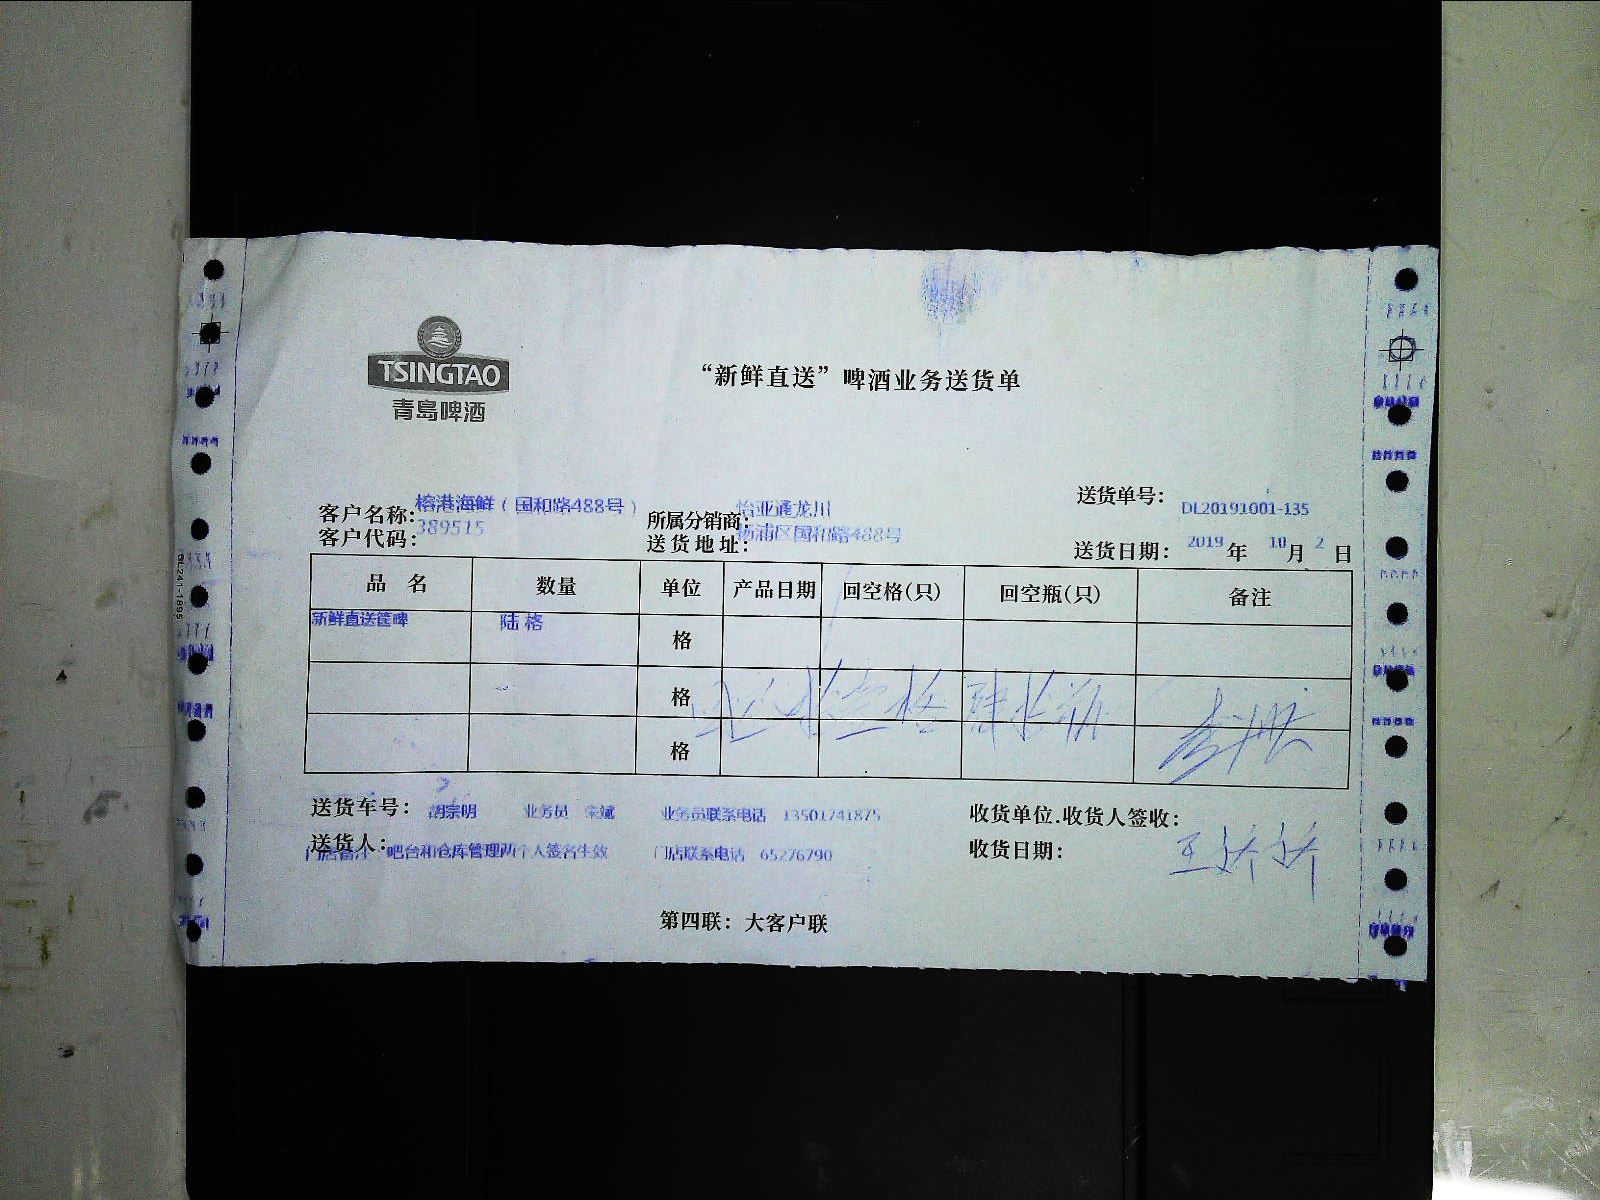 TSINGTAO
青岛啤酒
“新鲜直送”啤酒业务送货单
送货单号: DL20191001-135
客户名称: 榕港海鲜(国和路488号) 所属分销商: 怡亚通龙川
客户代码: 389515 送货地址: 杨浦区国和路488号
送货日期: 2019 年 10 月 2 日
品名 数量 单位 产品日期 回空格(只) 回空瓶(只) 备注
新鲜直送筐啤 陆格 格
格
格
送货车号: 胡宗明 业务员 宋斌 业务员联系电话 13501741875 收货单位.收货人签收:
送货人:
门店备注: 吧台和仓库管理两个人签名生效 门店联系电话 65276790 收货日期:
第四联: 大客户联
GL241-1895